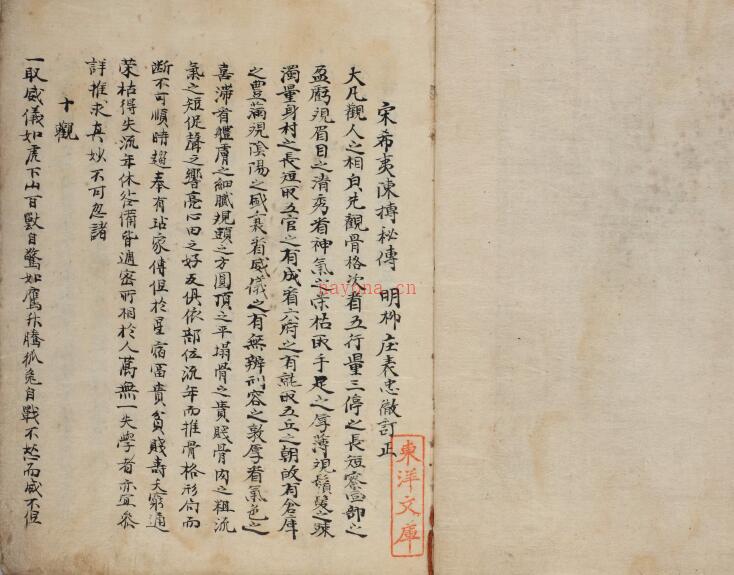 宋希夷陳摶秘傳 明柳庄袁忠徹訂正
東洋文庫
大凡觀人之相貞先觀骨格次看五行量三停之長短察四部之
盈虧視眉目之清秀看神氣之榮枯取手足之厚薄視鬚髮之疎
濁量身材之長短取五官之有成看六府之有就取五丘之朝故有倉庫
之豊滿視陰陽之盛衰看威儀之有無辨刑容之敦厚看氣色之
喜滯看體膚之細膩視頭之方圓頂之平塌骨之貴賤骨肉之粗流
氣之短促聲之響亮心田之好歹俱依部位流年而推骨格形局而
断不可順時趨奉有玷家傳但於星宿冨貴貧賤壽夭窮通
荣枯得失流年休咎備皆適密所相於人萬無一失學者亦宜參
詳推求真妙不可忽諸
十觀
一取威儀如虎下山百獸自驚如鷹升騰狐兔自戰不怒而威不但
nayona.cn